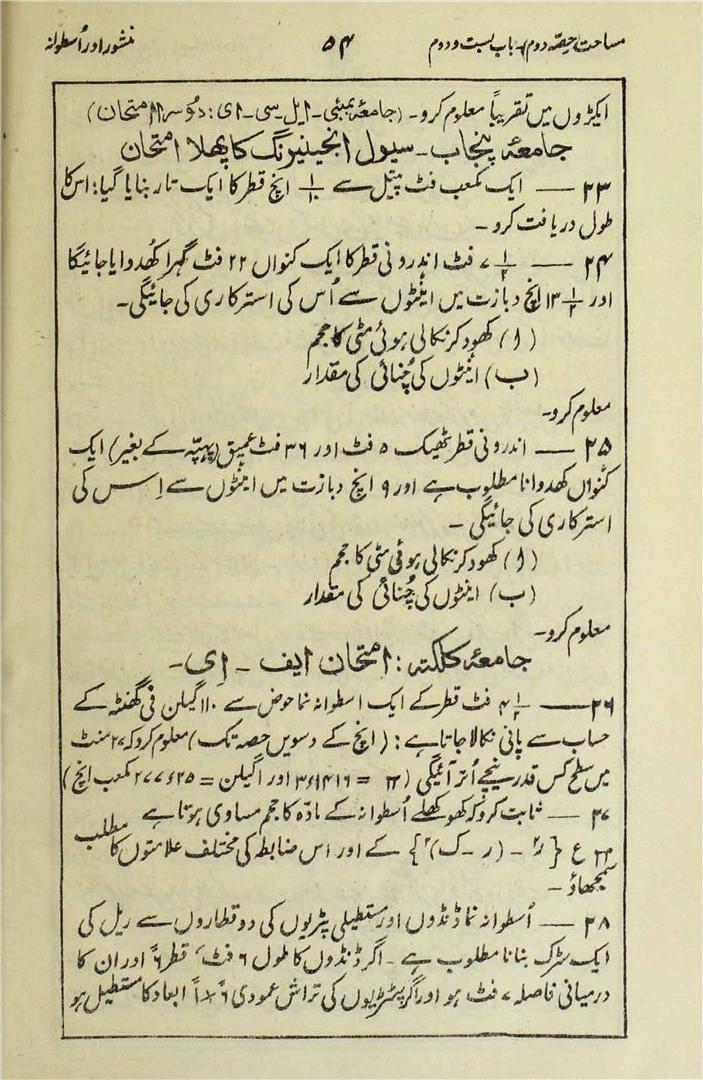 مساحت حصہ دوم۔ باب بست و دوم ۵۴ منشور اور اُسطوانہ
ایکڑوں میں تقریباً معلوم کرو۔ (جامعۂ بمبئی۔ ایل۔ سی۔ ای: دوسرا امتحان)
جامعۂ پنجاب۔ سیول انجینیرنگ کا پھلا امتحان
۲۳ — ایک مکعب فٹ پیتل سے ۱/۱۰ انچ قطر کا ایک تار بنایا گیا: اس کا
طول دریافت کرو۔
۲۴ — ۷ ۱/۲ فٹ اندرونی قطر کا ایک کنواں ۲۲ فٹ گہرا کھُدوایا جائیگا
اور ۱۳ ۱/۲ انچ دبازت میں اینٹوں سے اُس کی استرکاری کی جائیگی۔
(ا) کھود کر نکالی ہوئی مٹی کا حجم
(ب) اینٹوں کی چُنائی کی مقدار
معلوم کرو۔
۲۵ — اندرونی قطر ٹھیک ۵ فٹ اور ۳۶ فٹ عمیق (پہیّہ کے بغیر) ایک
کنواں کھدوانا مطلوب ہے اور ۹ انچ دبازت میں اینٹوں سے اِس کی
استرکاری کی جائیگی ۔
(ا) کھود کر نکالی ہوئی مٹی کا حجم
(ب) اینٹوں کی چُنائی کی مقدار
معلوم کرو۔
جامعۂ کلکتہ: امتحان ایف ۔ اِی۔
۲۶ — ۴ ۱/۲ فٹ قطر کے ایک اسطوانہ نما حوض سے ۱۱۰ گیلن فی گھنٹہ کے
حساب سے پانی نکالا جاتا ہے: (انچ کے دسویں حصہ تک) معلوم کرو کہ ۲۷ منٹ
میں سطح کس قدر نیچے اُتر آئیگی (π = ۳٫۱۴۱۶ اور ۱ گیلن = ۲۷۷٫۲۵ مکعب انچ)
۲۷ — ثابت کرو کہ کھوکھلے اُسطوانہ کے مادّہ کا حجم مساوی ہوتا ہے
π ع {ر² − (ر − ک)²} کے اور اس ضابطہ کی مختلف علامتوں کا مطلب
سمجھاؤ۔
۲۸ — اُسطوانہ نما ڈنڈوں اور مستطیلی پٹریوں کی دو قطاروں سے ریل کی
ایک سڑک بنانا مطلوب ہے ۔ اگر ڈنڈوں کا طول ۶ فٹ، قطر ۶ً اور ان کا
درمیانی فاصلہ ۷ فٹ ہو اور اگر پٹریوں کی تراش عمودی ۶ً × ۱ً ابعاد کا مستطیل ہو